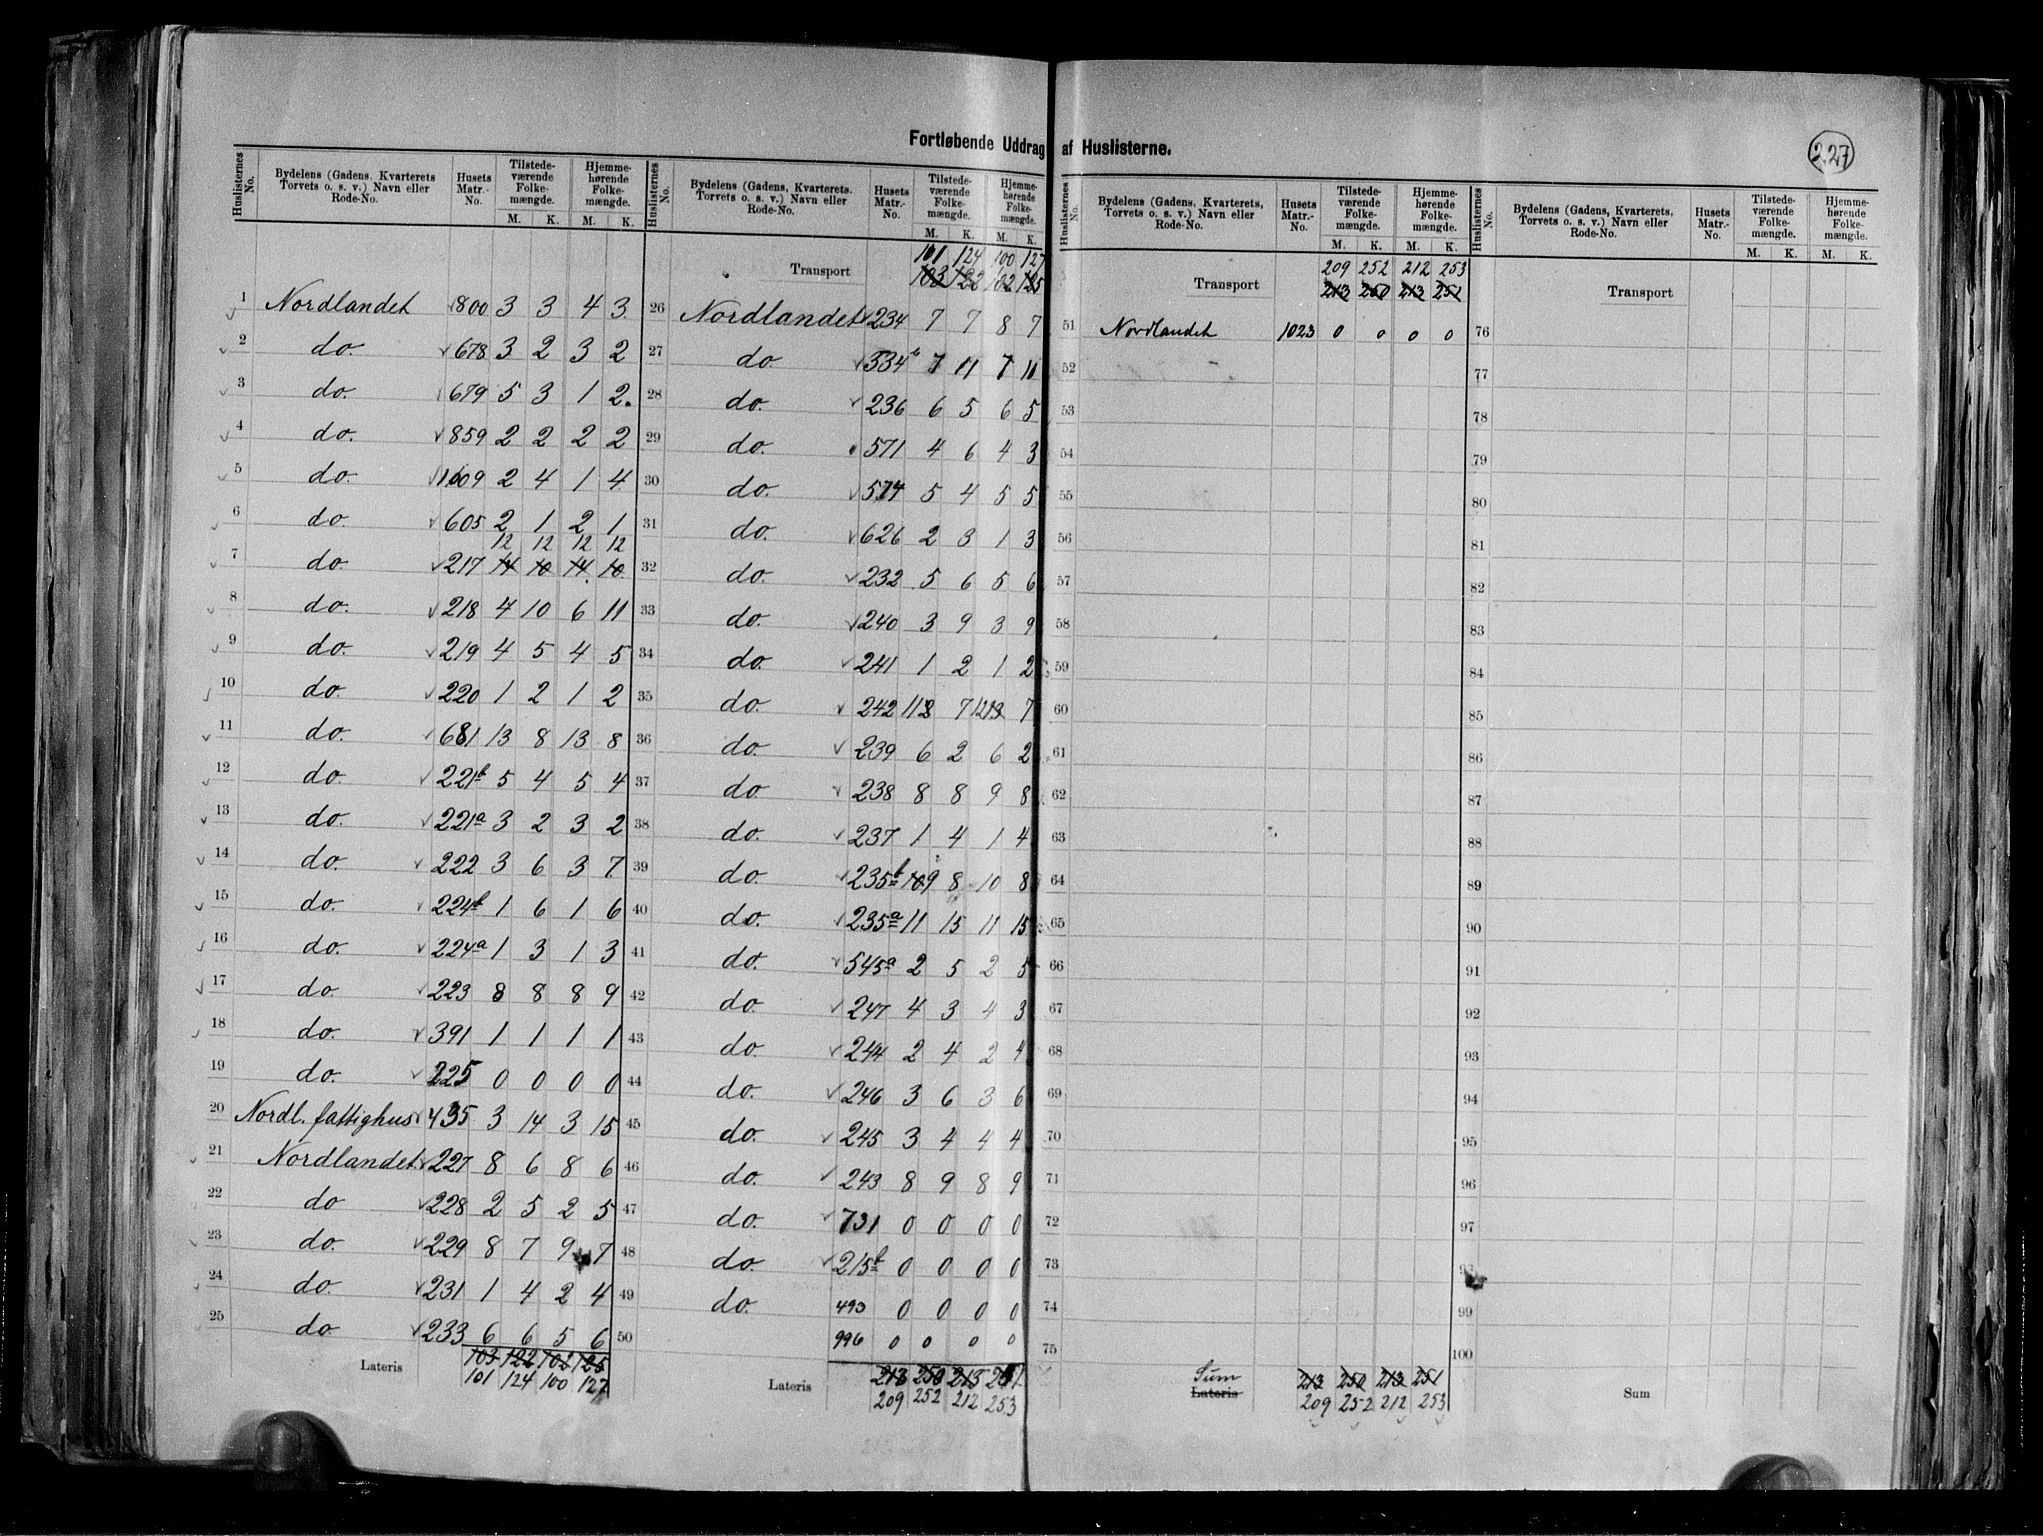 Fortløbende Uddrag af Huslisterne.
227
Huslisternes No. | Bydelens (Gadens, Kvarterets Torvets o. s. v.) Navn eller Rode-No. | Husets Matr.-No. | Tilstede-værende Folke-mængde. M. K. | Hjemme-hørende Folke-mængde. M. K.
1 Nordlandet 800 3 3 4 3
2 do. 678 3 2 3 2
3 do. 679 5 3 1 2
4 do. 859 2 2 2 2
5 do. 1009 2 4 1 4
6 do. 605 2 1 2 1
12 12 12 12
7 do. 217 14 10 14 10
8 do. 218 4 10 6 11
9 do. 219 4 5 4 5
10 do. 220 1 2 1 2
11 do. 681 13 8 13 8
12 do. 221b 5 4 5 4
13 do. 221a 3 2 3 2
14 do. 222 3 6 3 7
15 do. 224b 1 6 1 6
16 do. 224a 1 3 1 3
17 do. 223 8 8 8 9
18 do. 391 1 1 1 1
19 do. 225 0 0 0 0
20 Nordl. fattighus 435 3 14 3 15
21 Nordlandet 227 8 6 8 6
22 do 228 2 5 2 5
23 do. 229 8 7 9 7
24 do. 231 1 4 2 4
25 do. 233 6 6 5 6
Lateris 103 122 102 125
101 124 100 127
Huslisternes No. | Bydelens (Gadens, Kvarterets, Torvets o. s. v.) Navn eller Rode-No. | Husets Matr.-No. | Tilstede-værende Folke-mængde. M. K. | Hjemme-hørende Folke-mængde. M. K.
101 124 100 127
Transport 103 122 102 125
26 Nordlandet 234 7 7 8 7
27 do. 534b 7 11 7 11
28 do. 236 6 5 6 5
29 do. 571 4 6 4 3
30 do. 574 5 4 5 5
31 do. 626 2 3 1 3
32 do. 232 5 6 5 6
33 do. 240 3 9 3 9
34 do. 241 1 2 1 2
35 do. 242 7 7
36 do. 239 6 2 6 2
37 do. 238 8 8 9 8
38 do. 237 1 4 1 4
39 do. 235b 10 9 8 10 8
40 do. 235a 11 15 11 15
41 do. 545a 2 5 2 5
42 do. 247 4 3 4 3
43 do. 244 2 4 2 4
44 do. 246 3 6 3 6
45 do. 245 3 4 4 4
46 do. 243 8 9 8 9
47 do. 731 0 0 0 0
48 do. 215b 0 0 0 0
49 do. 493 0 0 0 0
50 996 0 0 0 0
Lateris 213 250 213 251
209 252 212 253
Huslisternes No. | Bydelens (Gadens, Kvarterets, Torvets o. s. v.) Navn eller Rode-No. | Husets Matr.-No. | Tilstede-værende Folke-mængde. M. K. | Hjemme-hørende Folke-mængde. M. K.
209 252 212 253
Transport 213 250 213 251
51 Nordlandet 1023 0 0 0 0
52
53
54
55
56
57
58
59
60
61
62
63
64
65
66
67
68
69
70
71
72
73
74
75
Sum
Lateris 213 250 213 251
209 252 212 253
Huslisternes No. | Bydelens (Gadens, Kvarterets, Torvets o. s. v.) Navn eller Rode-No. | Husets Matr.-No. | Tilstede-værende Folke-mængde. M. K. | Hjemme-hørende Folke-mængde. M. K.
Transport
76
77
78
79
80
81
82
83
84
85
86
87
88
89
90
91
92
93
94
95
96
97
98
99
100
Sum